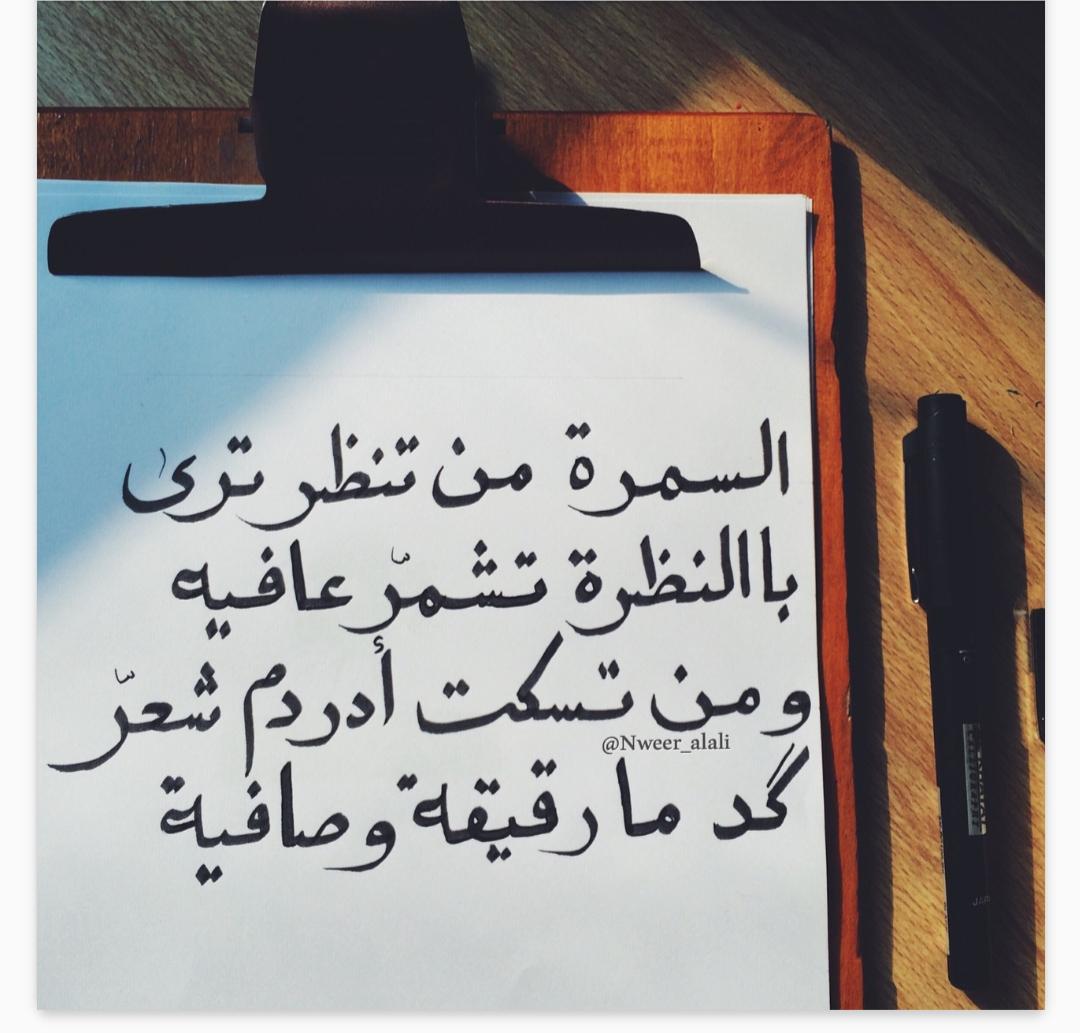 السمرة من تنظر ترىٰ
باالنظرة تشمرّ عافيه
ومن تسكت أدردم شعرّ
@Nweer_alali
گد ما رقيقة وصافية